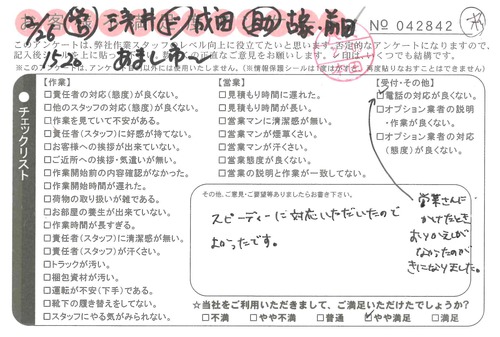 2/26 営 玉井 ド 成田 助 塚・前田
No 042842
15-20 あまし市へ
このアンケートは、弊社作業スタッフのレベル向上に役立てたいと思います。否定的なアンケートになりますので、
記入後
の正直なご意見をお願いします。レ印はいくつでも結構です。
※このアンケートは
以外には使用いたしません。(※情報保護シールは1度はがすと、再度貼りなおすことはできません)
チェックリスト
【作業】
□責任者の対応(態度)が良くない。
□他のスタッフの対応(態度)が良くない。
□作業を見ていて不安がある。
□責任者(スタッフ)に好感が持てない。
□お客様への挨拶が出来ていない。
□ご近所への挨拶・気遣いが無い。
□作業開始前の内容確認がなかった。
□作業開始時間が遅れた。
□荷物の取り扱いが雑である。
□お部屋の養生が出来ていない。
□作業時間が長すぎる。
□責任者(スタッフ)に清潔感が無い。
□責任者(スタッフ)が汗くさい。
□トラックが汚い。
□梱包資材が汚い。
□運転が不安(下手)である。
□靴下の履き替えをしてない。
□スタッフにやる気がみられない。
【営業】
□見積もり時間に遅れた。
□見積もり時間が長い。
□営業マンに清潔感が無い。
□営業マンが煙草くさい。
□営業マンが汗くさい。
□営業態度が良くない。
□営業の説明と作業が一致してない。
【受付・その他】
□電話の対応が良くない。
□オプション業者の説明
・作業が良くない。
□オプション業者の対応
(態度)が良くない。
その他、ご意見・ご要望等ありましたらお書き下さい。
スピーディーに対応いただいたので
よかったです。
営業さんに
かけたとき
おりかえしが
なかったのが
きになりました。
☆当社をご利用いただきまして、ご満足いただけたでしょうか?
□不満 □やや不満 □普通 ☑やや満足 □満足